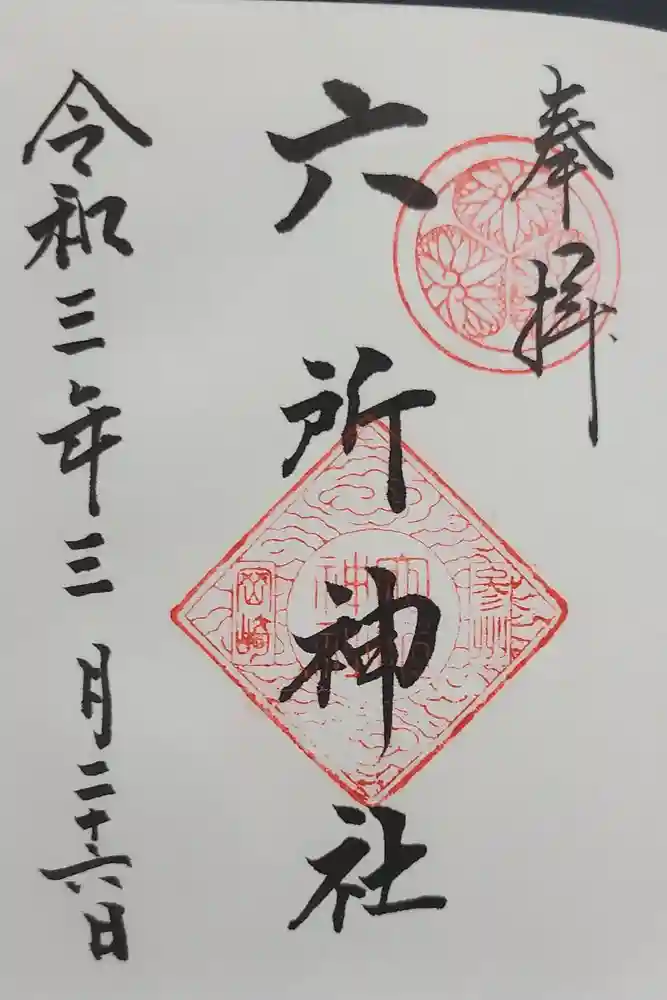 奉拝
六所神社
令和三年三月二十六日
参州
岡崎